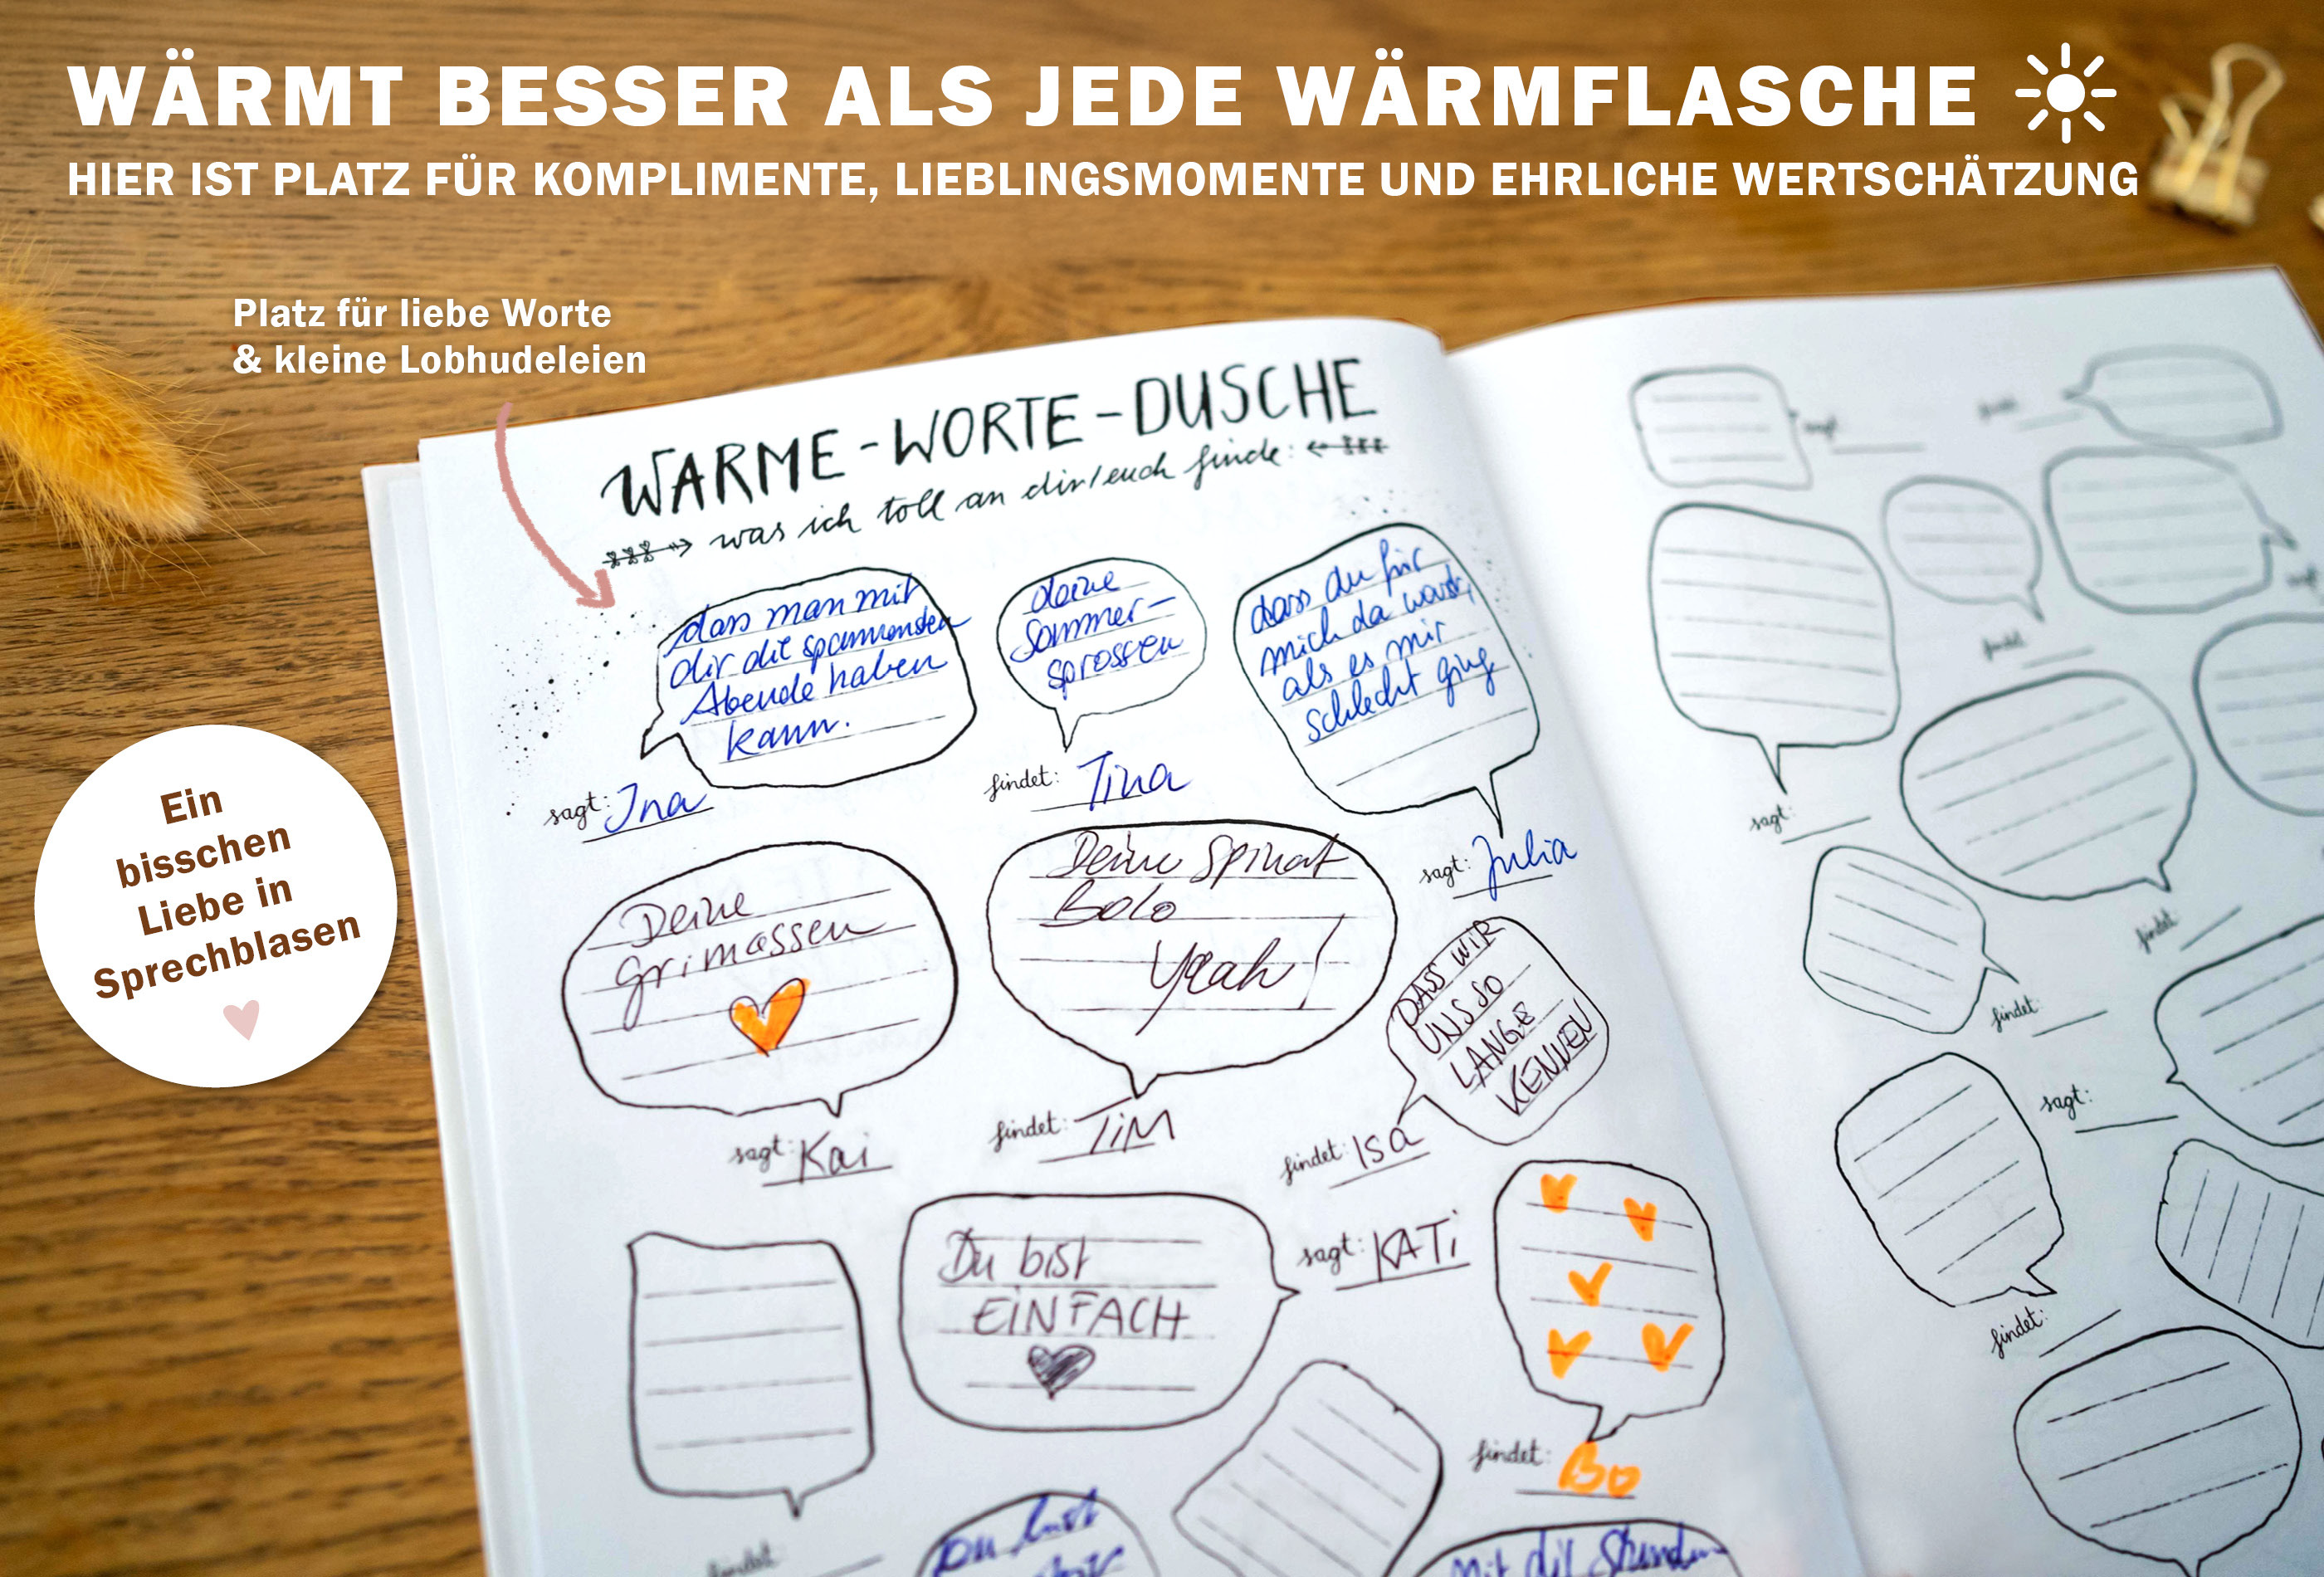 WÄRMT BESSER ALS JEDE WÄRMFLASCHE
HIER IST PLATZ FÜR KOMPLIMENTE, LIEBLINGSMOMENTE UND EHRLICHE WERTSCHÄTZUNG
Platz für liebe Worte
& kleine Lobhudeleien
Ein
bisschen
Liebe in
Sprechblasen
WARME-WORTE-DUSCHE
was ich toll an dir/euch finde:
dass man mit
dir die spannensten
Abende haben
kann.
sagt: Ina
deine
Sommer-
sprossen
findet: Tina
dass du für
mich da warst,
als es mir
schlecht ging
sagt: Julia
Deine
Grimassen
sagt: Kai
Deine Spinat
Bolo
Yeah!
findet: TiM
DASS WiR
UNS SO
LANGE
KENNEN
findet: ISA
Du bist
EiNFACH
sagt: KATi
findet: Bo
findet:
Du hast
mit dir
sagt:
findet:
findet:
sagt:
findet:
findet:
sagt:
findet: